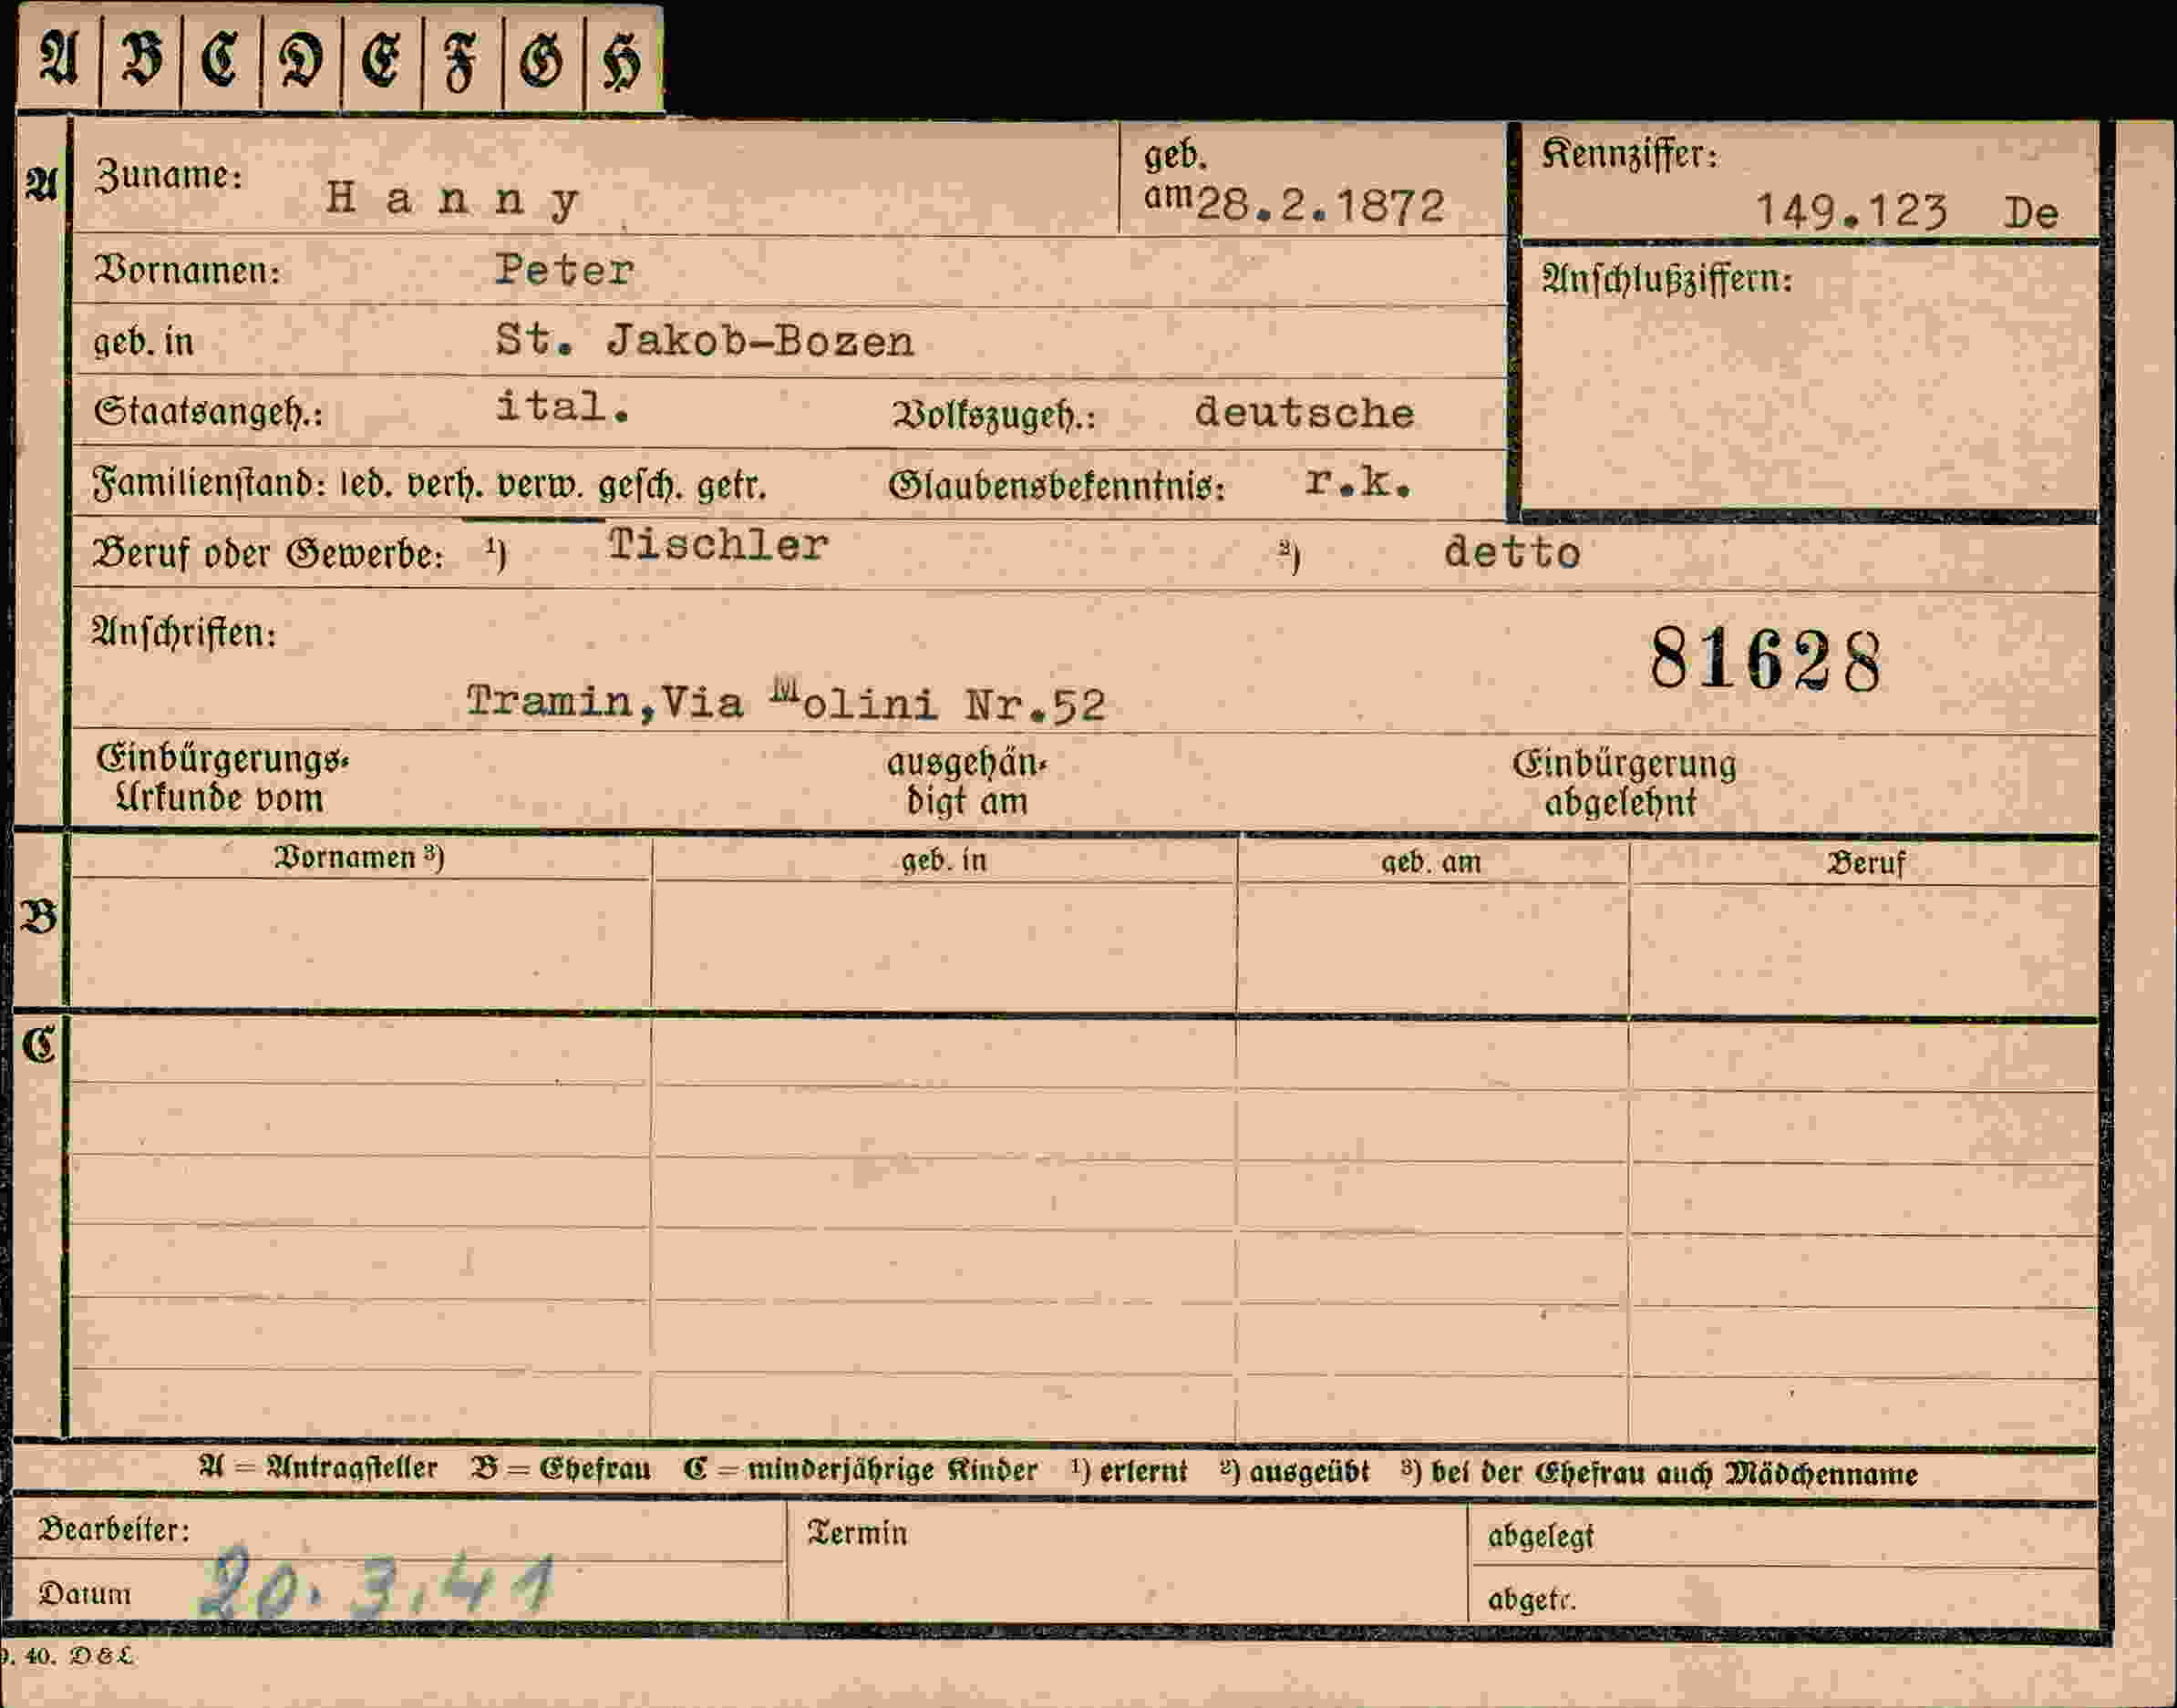 A B C D E F G H
A
Zuname: Hanny
geb. am 28.2.1872
Kennziffer: 149.123 De
Vornamen: Peter
Anschlußziffern:
geb. in St. Jakob-Bozen
Staatsangeh.: ital. Volkszugeh.: deutsche
Familienstand: led. verh. verw. gesch. getr. Glaubensbekenntnis: r.k.
Beruf oder Gewerbe: ¹) Tischler ²) detto
Anschriften:
81628
Tramin,Via Molini Nr.52
Einbürgerungs- ausgehän- Einbürgerung
Urkunde vom digt am abgelehnt
Vornamen ³) geb. in geb. am Beruf
B
C
A = Antragsteller B = Ehefrau C = minderjährige Kinder ¹) erlernt ²) ausgeübt ³) bei der Ehefrau auch Mädchenname
Bearbeiter: Termin abgelegt
Datum 20.3.41 abgetr.
9. 40. D & L